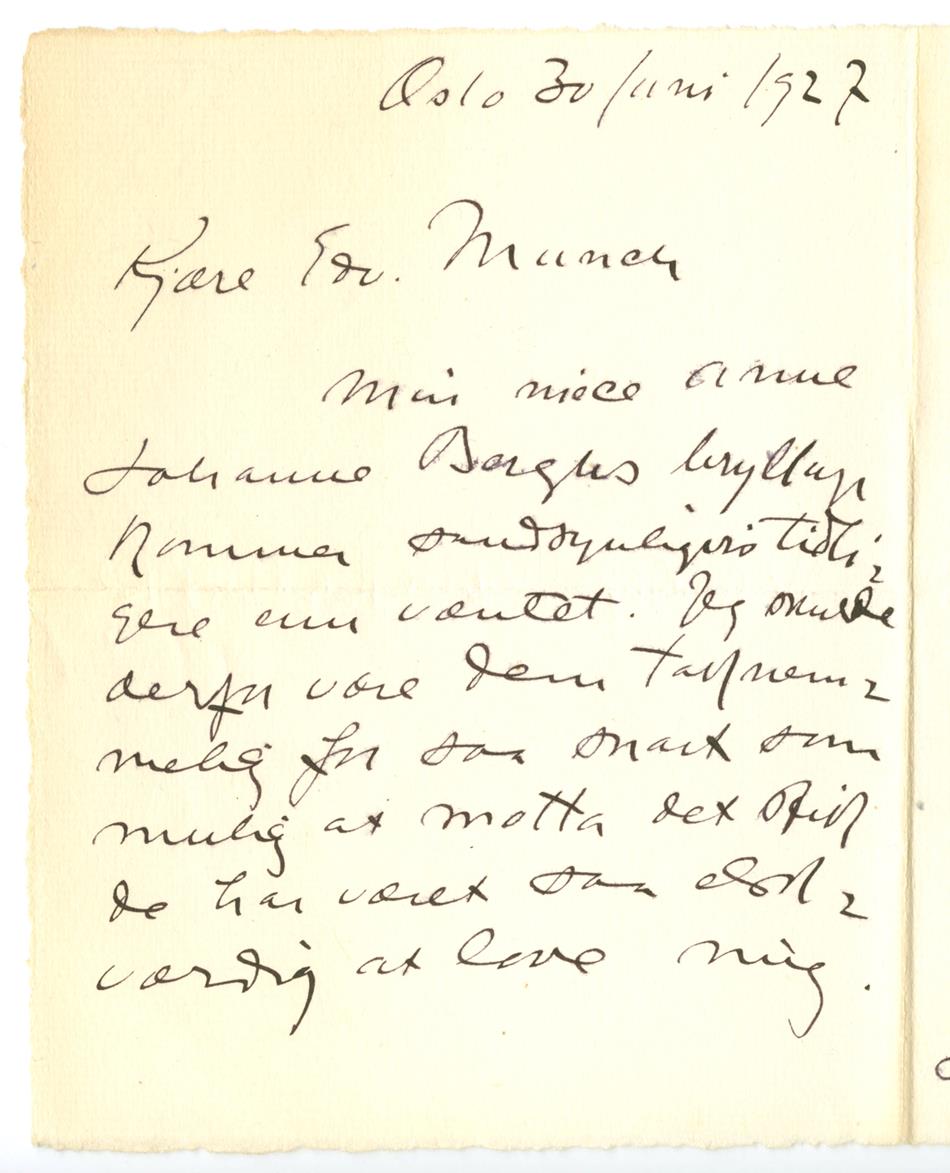 Oslo 30 juni 1927
Kjære Edv. Munch
Min niece Anne
Johanne Berghs bryllup
kommer sandsynligvis tidli-
gere enn væntet. Jeg skulde
derfor være Dem taknem-
melig for saa snart som
mulig at motta det
De har været saa elsk-
værdig at love mig.